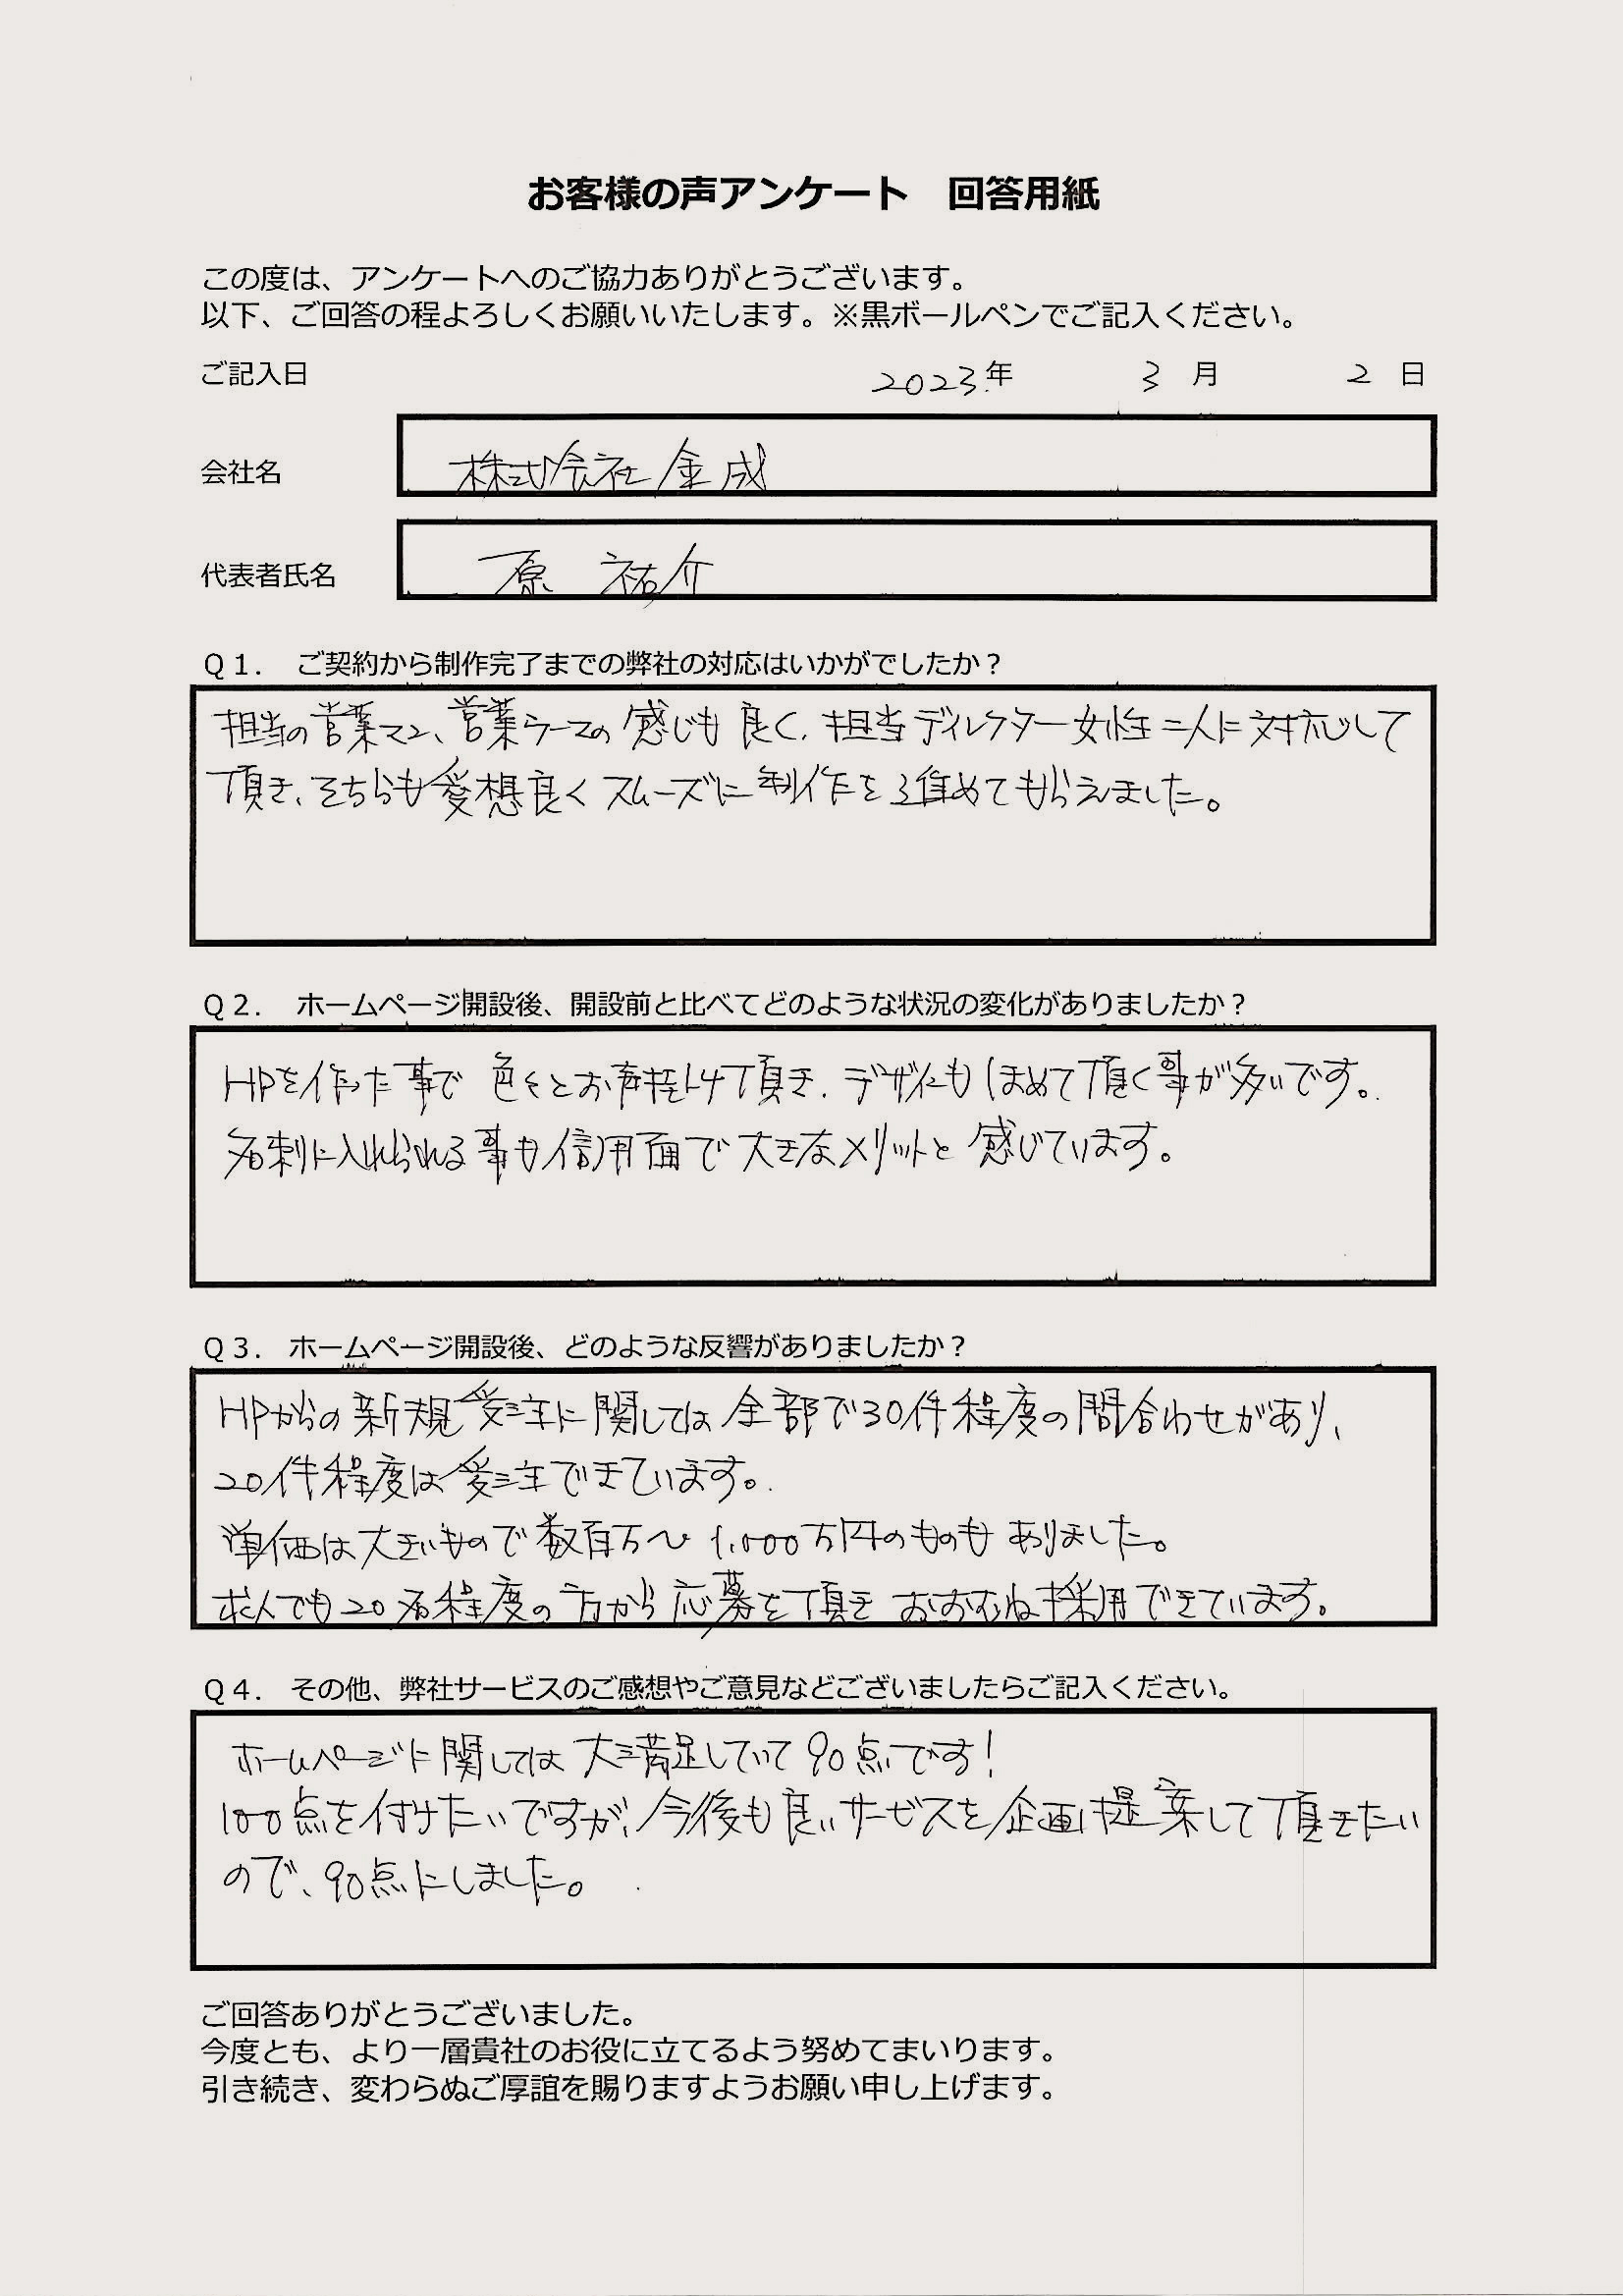 お客様の声アンケート 回答用紙
この度は、アンケートへのご協力ありがとうございます。
以下、ご回答の程よろしくお願いいたします。※黒ボールペンでご記入ください。
ご記入日 2023年 3月 2日
会社名 株式会社金成
代表者氏名 原 祐介
Q1. ご契約から制作完了までの弊社の対応はいかがでしたか?
担当の営業マン、営業ラーマの感じも良く、担当ディレクター女性二人に対応して
頂き、そちらも愛想良くスムーズに制作を進めてもらえました。
Q2. ホームページ開設後、開設前と比べてどのような状況の変化がありましたか?
HPを作った事で 色々とお声掛け頂き、デザインもほめて頂く事が多いです。
名刺に入れられる事も信用面で大きなメリットと感じています。
Q3. ホームページ開設後、どのような反響がありましたか?
HPからの新規受注に関しては全部で30件程度の問合わせがあり、
20件程度は受注できています。
単価は大きいもので数百万〜1,000万円のものもありました。
求人でも20名程度の方から応募を頂き おおむね採用できています。
Q4. その他、弊社サービスのご感想やご意見などございましたらご記入ください。
ホームページに関しては大満足していて90点です!
100点を付けたいですが、今後も良いサービスを企画提案して頂きたい
ので、90点にしました。
ご回答ありがとうございました。
今度とも、より一層貴社のお役に立てるよう努めてまいります。
引き続き、変わらぬご厚誼を賜りますようお願い申し上げます。